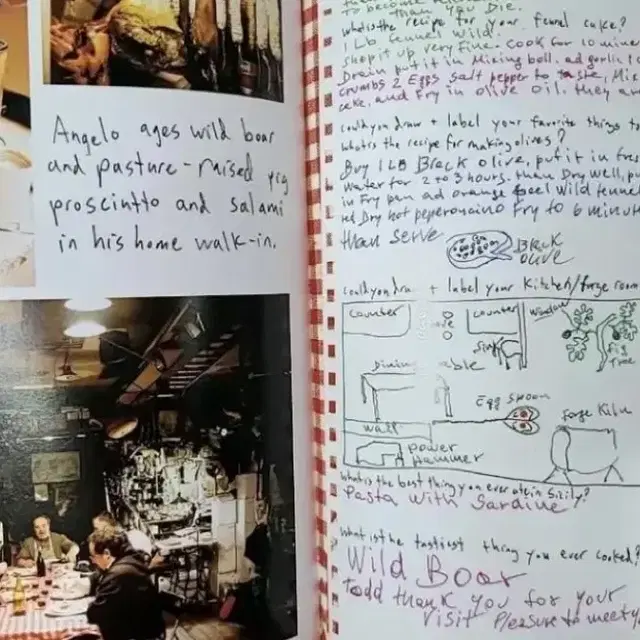 Angelo ages wild boar
and pasture-raised pig
prosciutto and salami
in his home walk-in.
than Die.
whatsthe recipe for your fennel cake?
1 Lb fennel wild.
chop it up very fine. Cook for 10 minu
Drain put it in Mixing boll. ad garlic
crumbs 2 Eggs salt pepper to taste. Mi
cake, and fry in olive oil. they a
could you draw + label your favorite things to
whats the recipe for making olives?
Buy 1 LB Black olive, put it in
water for 2 to 3 hours. than Dry well, pu
in fry pan ad orange peel wild fenne
Dry hot peperoncino fry to 6 minut
than serve
Black
olive
could you draw + label your Kitchen/forge room
counter
counter
window
sink
fig
tree
dining table
Egg spoon
wall
forge Kiln
power
hammer
whatis the best thing you ever ate in Sicily?
Pasta with Sardine
what is the tastiest thing you ever cooked?
Wild Boar
Todd thank you for your
visit Pleasure to meet y